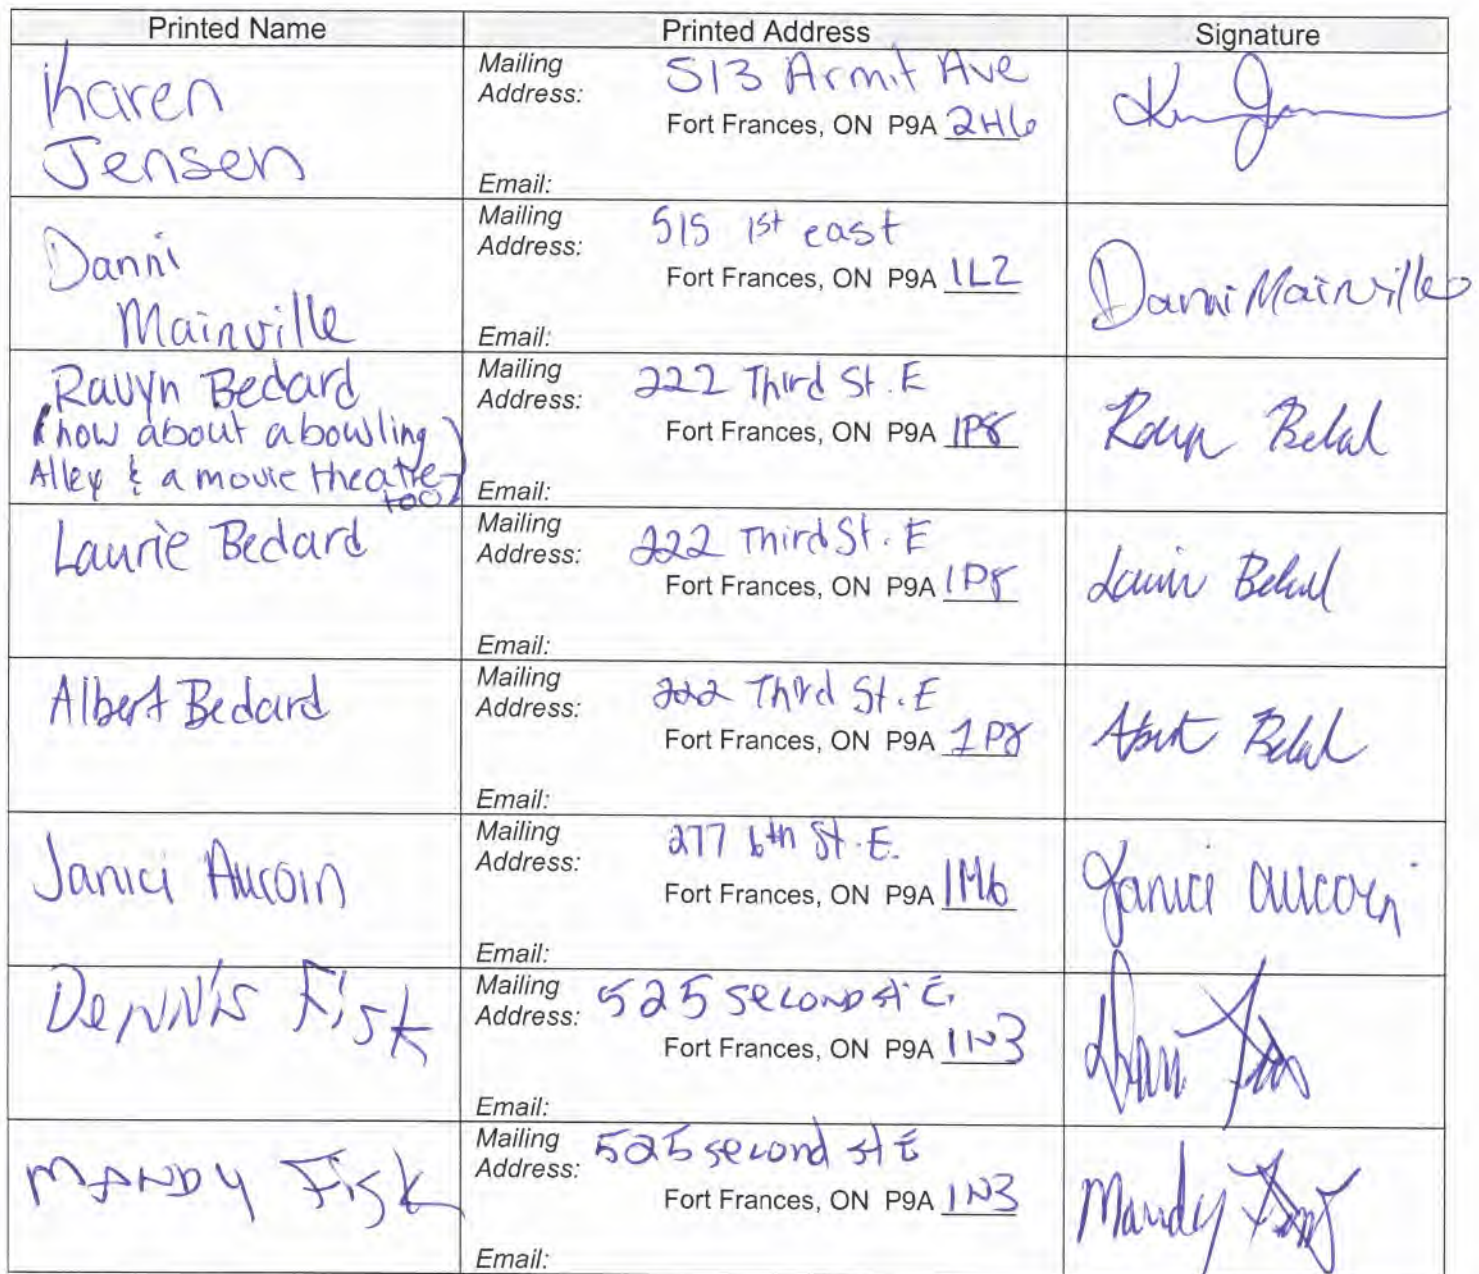 Printed Name Printed Address Signature
Karen
Jensen
Mailing
Address: 513 Armit Ave
Fort Frances, ON P9A 2H6
Email:
Danni
Mainville
Mailing
Address: 515 1st east
Fort Frances, ON P9A 1L2
Email:
Danni Mainville
Ravyn Bedard
(how about a bowling
Alley & a movie theatre
too)
Mailing
Address: 222 Third St. E
Fort Frances, ON P9A 1P8
Email:
Laurie Bedard
Mailing
Address: 222 Third St. E
Fort Frances, ON P9A 1P8
Email:
Albert Bedard
Mailing
Address: 222 Third St. E
Fort Frances, ON P9A 1P8
Email:
Janice Aucoin
Mailing
Address: 277 6th St. E.
Fort Frances, ON P9A 1M6
Email:
Janice Aucoin
Dennis Fisk
Mailing
Address: 525 second st E.
Fort Frances, ON P9A 1N3
Email:
MANDY Fisk
Mailing
Address: 525 second st E
Fort Frances, ON P9A 1N3
Email:
Mandy